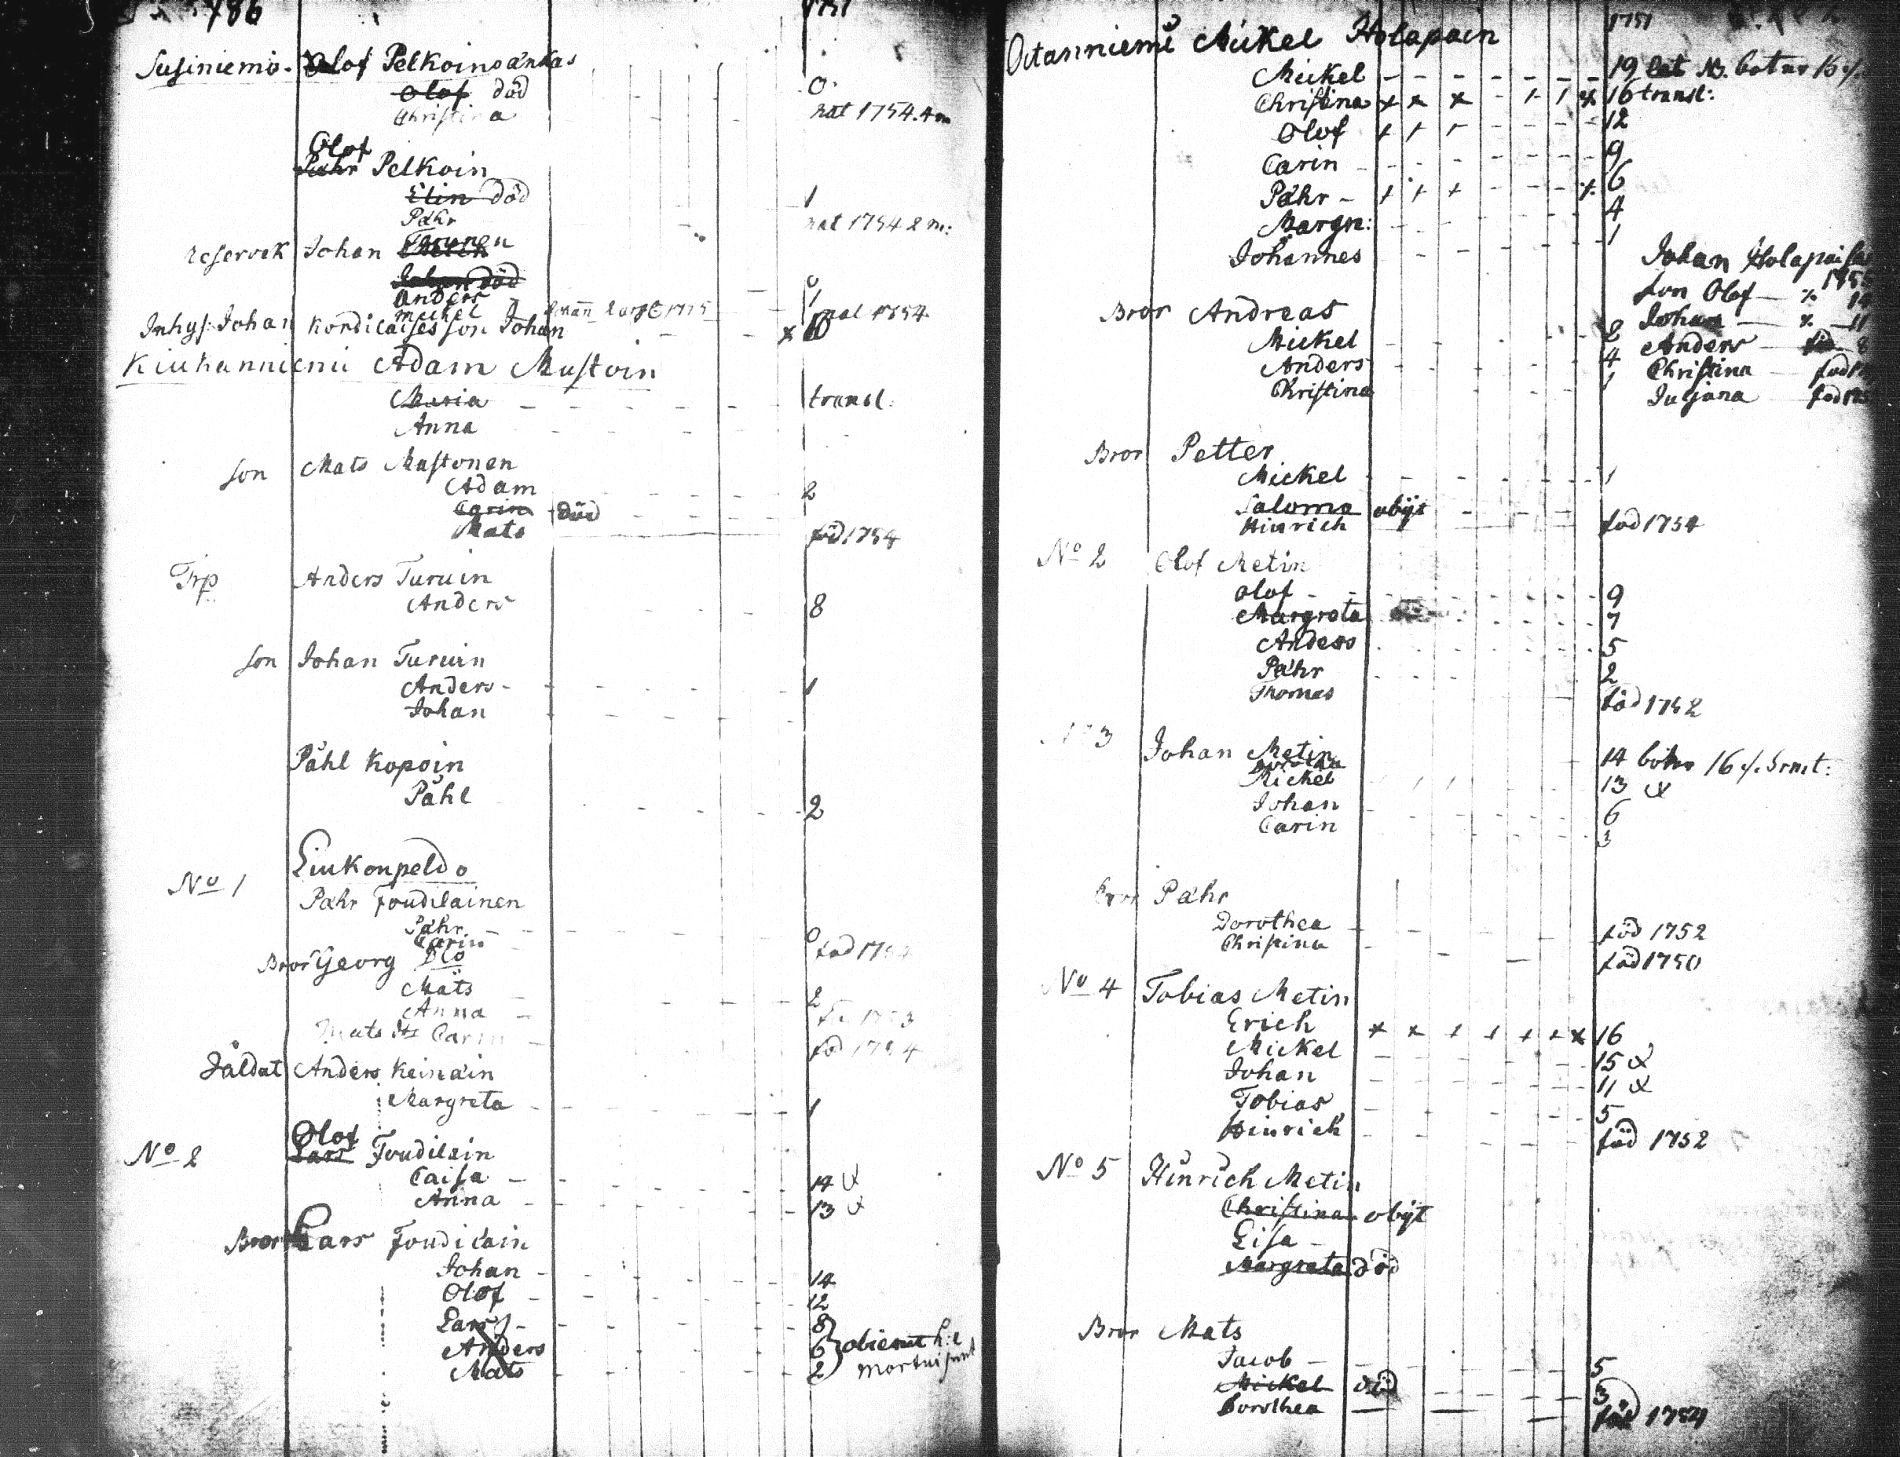 786
1751
Susiniemi. Olof Pelkoins änkas
Olof död 0.
Christina nat 1754. 4 m
Olof
Påhr Pelkoin
Elin död 1
Påhr nat 1754 2 m:
reservek Johan Turunen
Johan död 0
Anders 1
Mickel nat 1754.
Inhys: Johan Kordilaises son Johan × 10
Kiukanniemi Adam Mustoin
Maria transl.
Anna
son Mats Mustonen
Adam 2
Carin död
Mats född 1754
Trp Anders Turuin
Anders 8
son Johan Turuin
Anders 1
Johan
Påhl Kopoin
Påhl 2
Liukonpeldo
No 1
Påhr Foudilainen
Påhr 0
Carin föd 1754
Bror Georg Do
Mats 2
Anna 1753
Mats Carin föd 1754
Såldat Anders Keinäin
Margreta 1
Olof
No 2 Lars Foudilain
Caisa 14
Anna 13
Bror Lars Foudilain
Johan 14
Olof 12
Lars 8
Anders 6 obierut h:e
Mats 2 mortui sunt
Oitanniemi Mickel Holapain 1751
Mickel 19
Christina × × × 16 transl:
Olof 12
Carin 9
Påhr 6
Margr: 4
Johannes 1
Johan Holapai
son Olof
Johan 11
Anders 8
Christina
Juljana
Bror Andreas
Mickel 2
Anders 4
Christina 1
Bror Petter
Mickel 1
Saloma obijt
Hinrich föd 1754
No 2 Olof Metin
Olof 9
Margreta 7
Anders 5
Påhr 2
Thomas föd 1752
3 Johan Metin
14
Mickel 13
Johan 6
Carin 3
Bror Påhr
Dorothea föd 1752
Christina föd 1750
No 4 Tobias Metin
Erich × × 16
Mickel 15
Johan 11
Tobias 5
Hinrich föd 1752
No 5 Hinrich Metin
Christina obijt
Lisa
Margreta död
Bror Mats
Jacob 5
Mickel död 3
Dorothea föd 1754